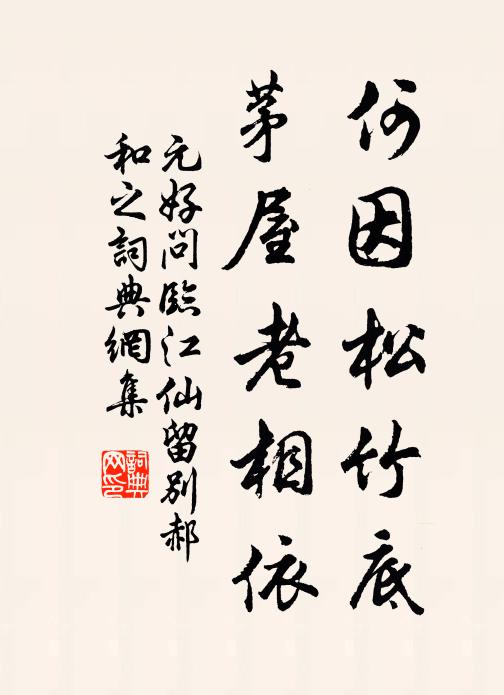 何因松竹底
茅屋老相依
元好問臨江仙留別郝
和之詞典網集
詞典
网印